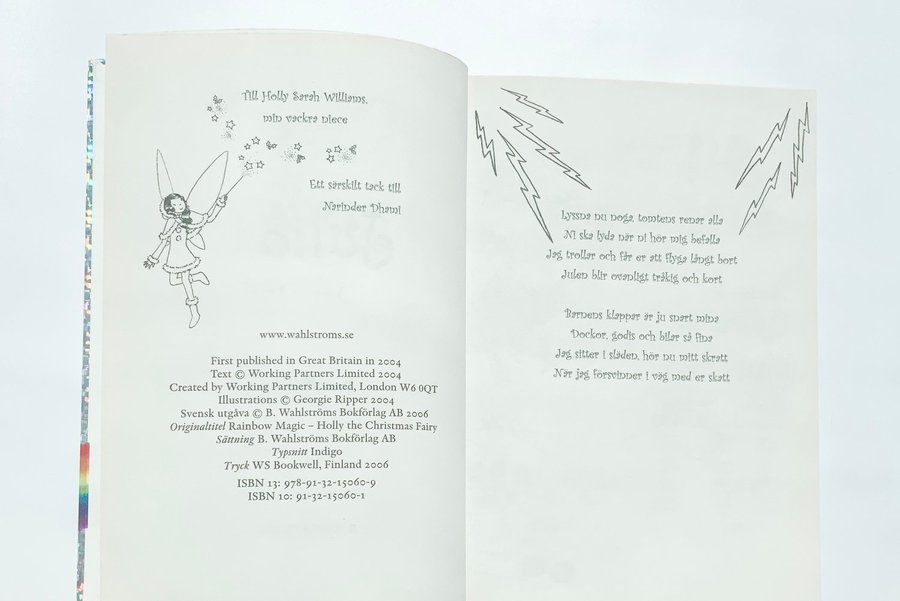 Till Holly Sarah Williams,
min vackra niece
Ett särskilt tack till
Narinder Dhami
www.wahlstroms.se
First published in Great Britain in 2004
Text © Working Partners Limited 2004
Created by Working Partners Limited, London W6 0QT
Illustrations © Georgie Ripper 2004
Svensk utgåva © B. Wahlströms Bokförlag AB 2006
Originaltitel Rainbow Magic – Holly the Christmas Fairy
Sättning B. Wahlströms Bokförlag AB
Typsnitt Indigo
Tryck WS Bookwell, Finland 2006
ISBN 13: 978-91-32-15060-9
ISBN 10: 91-32-15060-1
Lyssna nu noga, tomtens renar alla
Ni ska lyda när ni hör mig befalla
Jag trollar och får er att flyga långt bort
Julen blir ovanligt tråkig och kort
Barnens klappar är ju snart mina
Dockor, godis och bilar så fina
Jag sitter i släden, hör nu mitt skratt
När jag försvinner i väg med er skatt